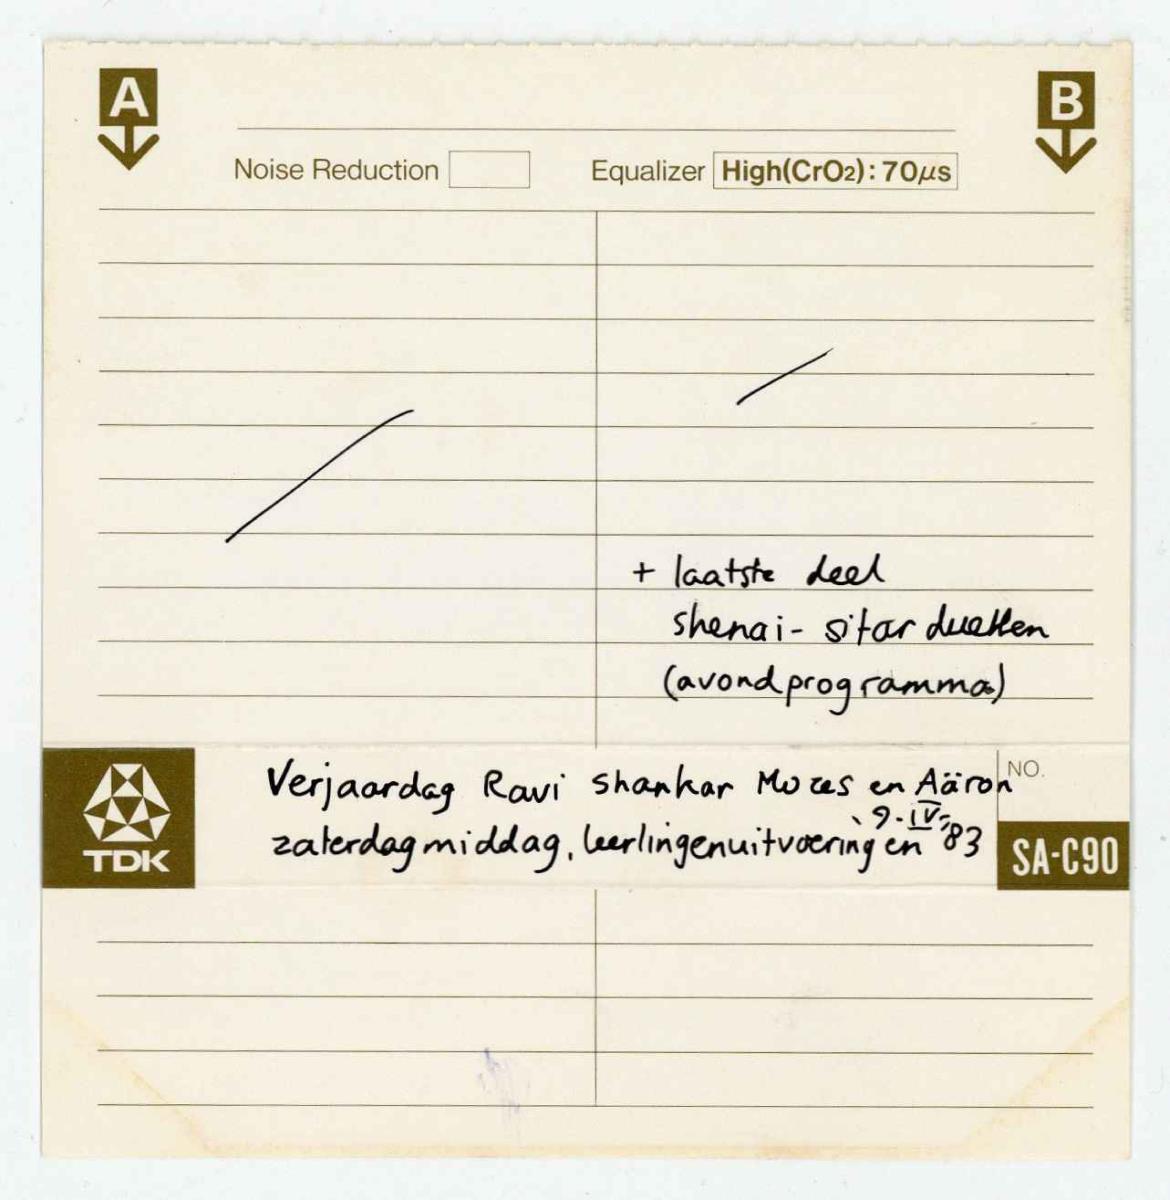 A B
Noise Reduction Equalizer High(CrO2): 70µs
+ laatste deel
shenai- sitar duetten
(avondprogramma)
Verjaardag Ravi Shankar Mozes en Aäron
NO.
zaterdagmiddag, leerlingenuitvoeringen 9-IV-'83
TDK
SA-C90